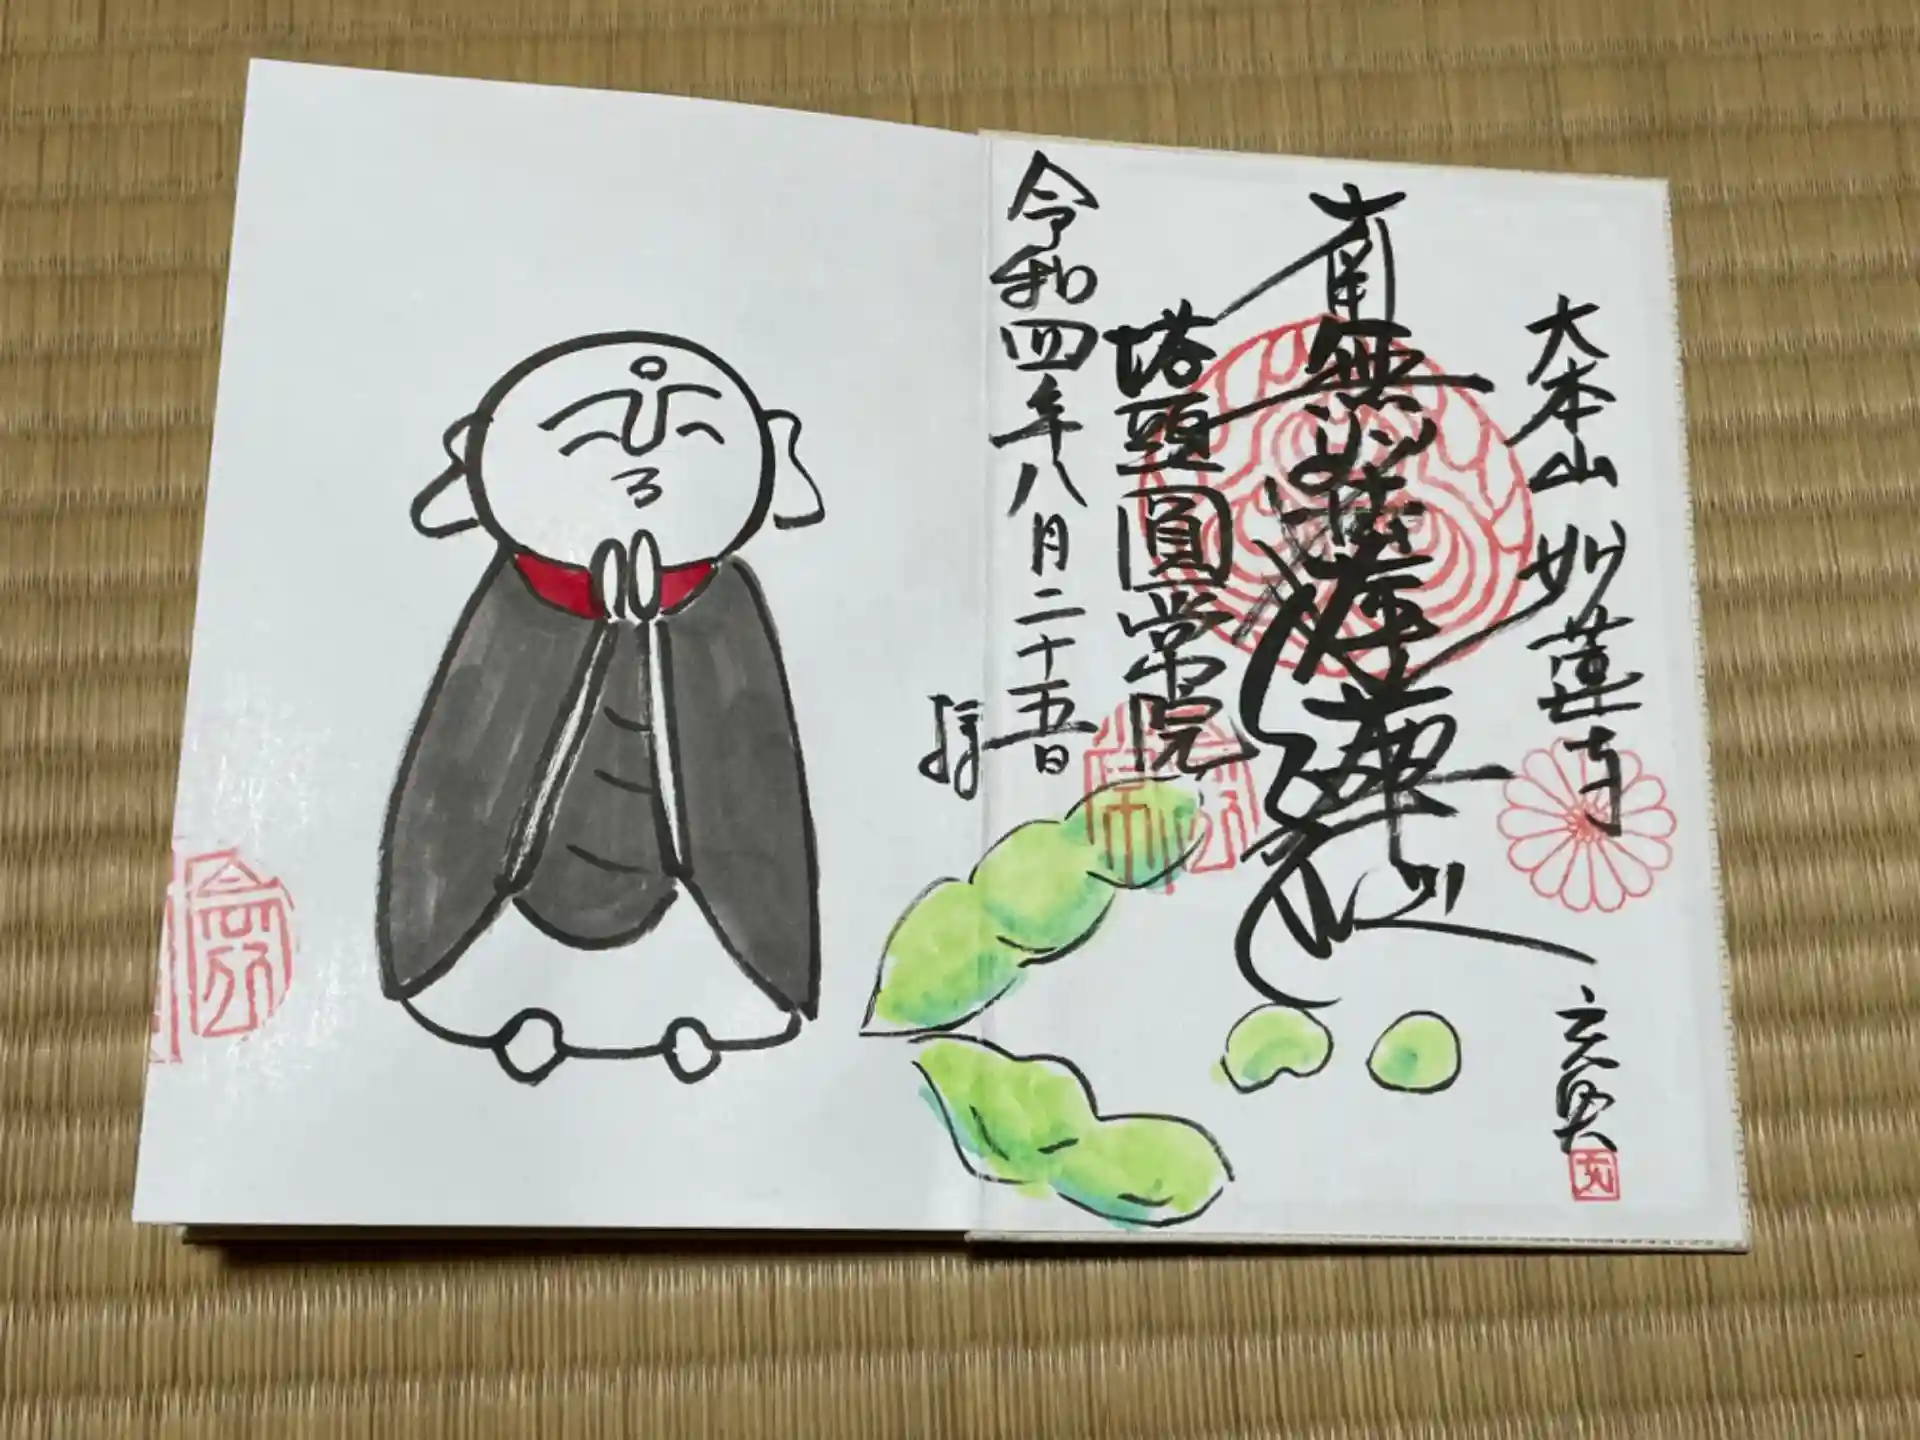 大本山 妙蓮寺
南無妙法蓮華経
塔頭 圓常院
令和四年八月二十五日
拝